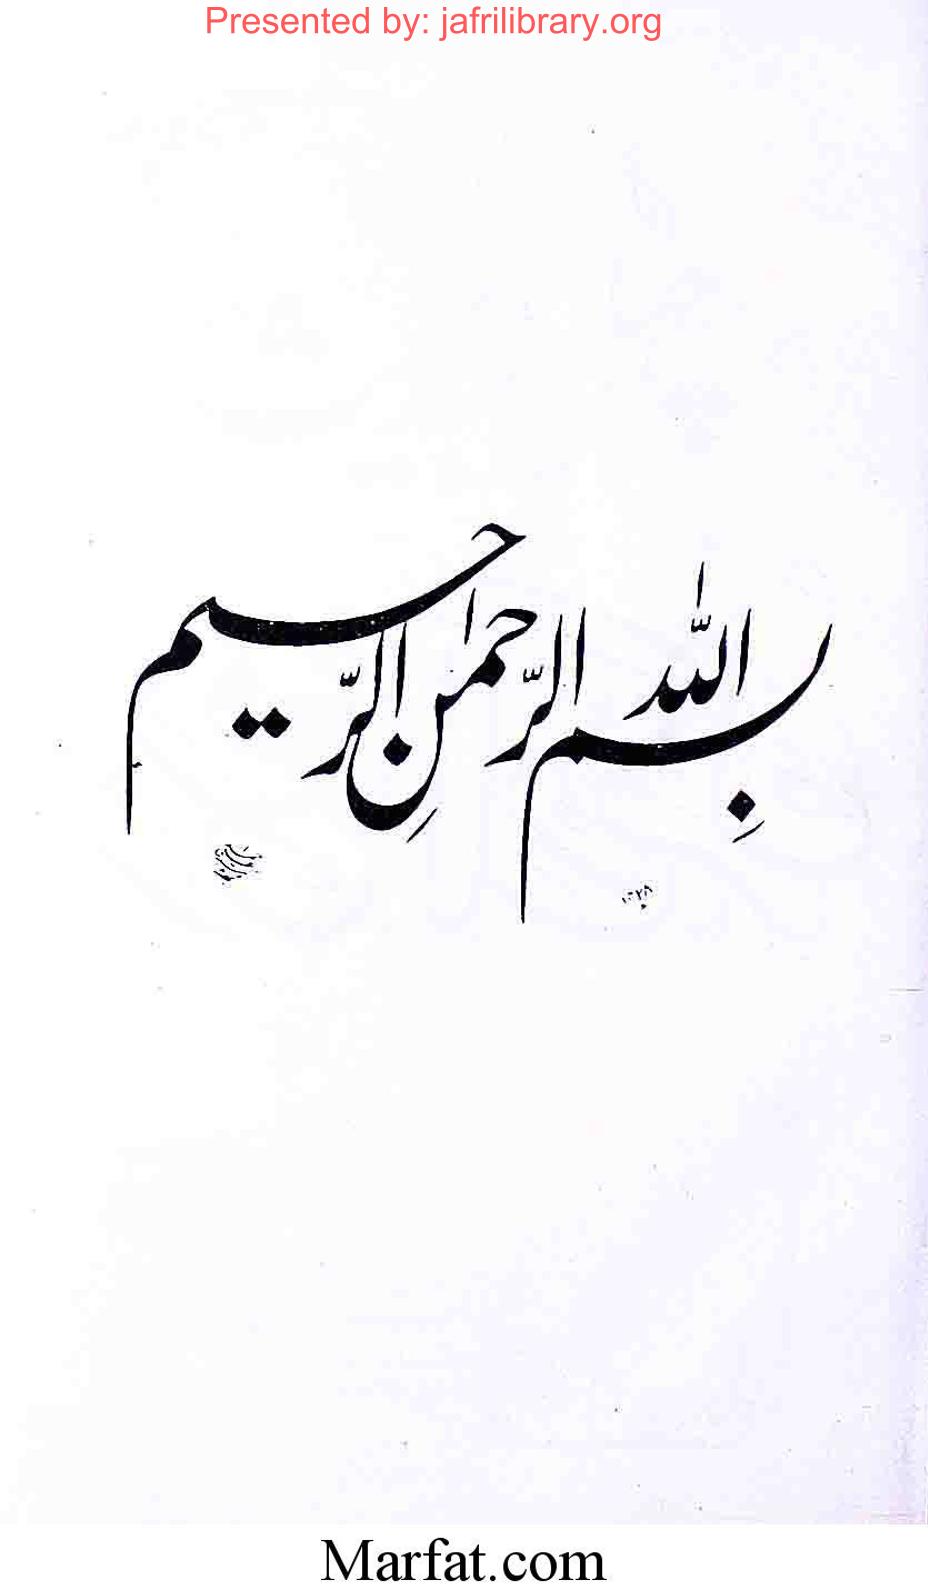 Presented by: jafrilibrary.org
بِسم اللّٰه الرّحمٰنِ الرّحیم
Marfat.com